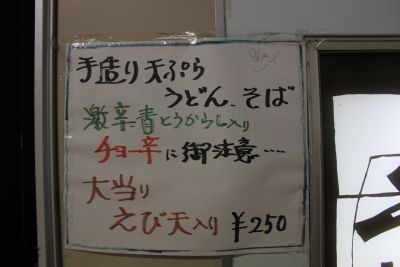 手造り天ぷら
うどん、そば
激辛青とうがらし入り
チョー辛に御注意‥‥
大当り
えび天入り ¥250